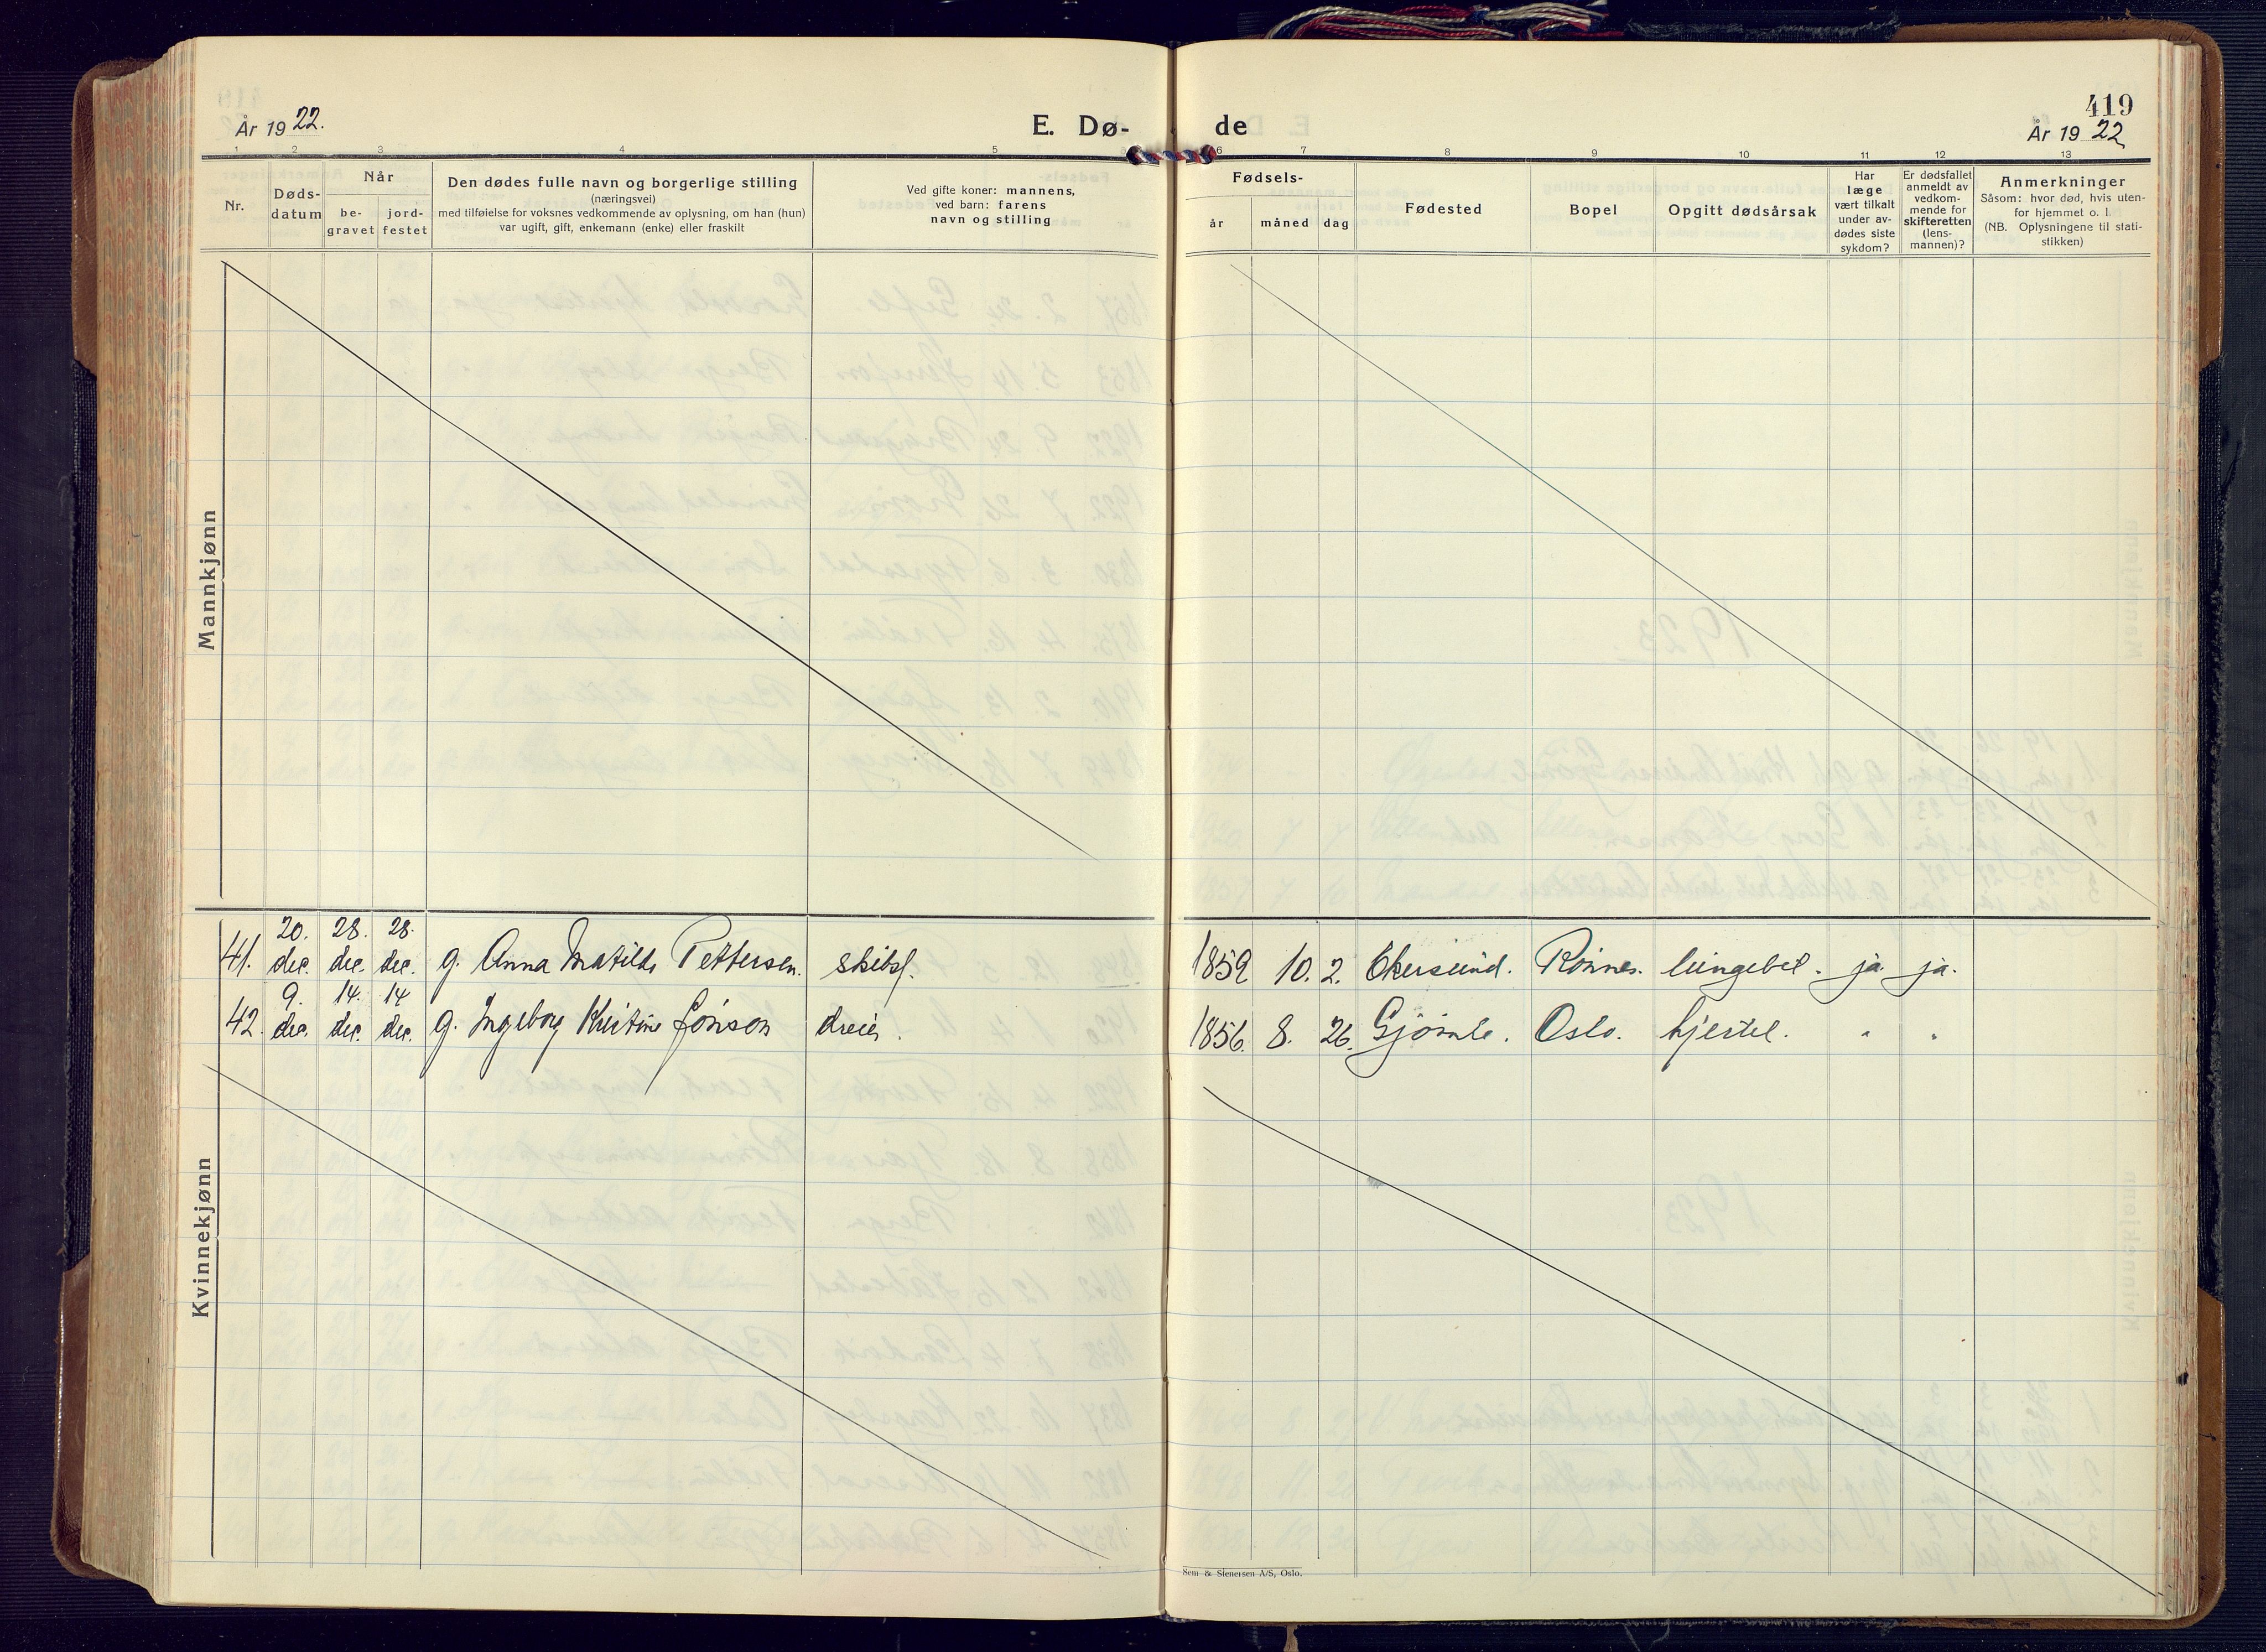 419
År 1922.
E. Dø-
de
År 1922
1 2 3 4 5 6 7 8 9 10 11 12 13
Nr.
Døds-
datum
Når
be-
gravet
jord-
festet
Den dødes fulle navn og borgerlige stilling
(næringsvei)
med tilføielse for voksnes vedkommende av oplysning, om han (hun)
var ugift, gift, enkemann (enke) eller fraskilt
Ved gifte koner: mannens,
ved barn: farens
navn og stilling
Fødsels-
år
måned
dag
Fødested
Bopel
Opgitt dødsårsak
Har
læge
vært tilkalt
under av-
dødes siste
sykdom?
Er dødsfallet
anmeldt av
vedkom-
mende for
skifteretten
(lens-
mannen)?
Anmerkninger
Såsom: hvor død, hvis uten-
for hjemmet o. l.
(NB. Oplysningene til stati-
stikken)
Mannkjønn
41. 20. dec. 28. dec. 28. dec. g. Anna Matilde Pettersen. skibsf. 1859 10. 2. Ekersund. Rönnes. lungebet. ja ja.
42. 9. dec. 14. dec. 14 dec. g. Ingeborg Kristine Jönson dreier. 1856. 8. 26. Gjömle. Oslo. hjertel. " "
Kvinnekjønn
Sem & Stenersen A/S, Oslo.